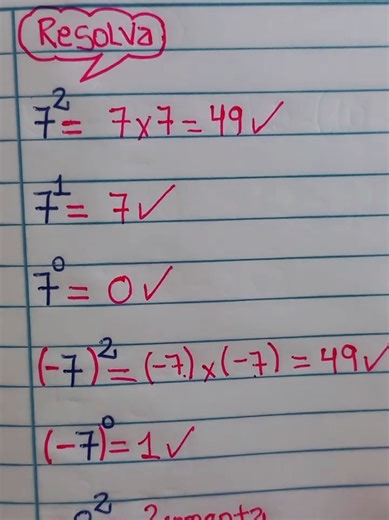 Resolva
7² = 7 x 7 = 49 ✓
7¹ = 7 ✓
7⁰ = 0 ✓
(-7)² = (-7) x (-7) = 49 ✓
(-7)⁰ = 1 ✓